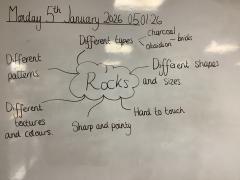 Monday 5th January 2026 05.01.26
Different types
charcoal
bricks
obsidian
Different patterns
Rocks
Different shapes and sizes
Different textures and colours.
Sharp and pointy
Hard to touch